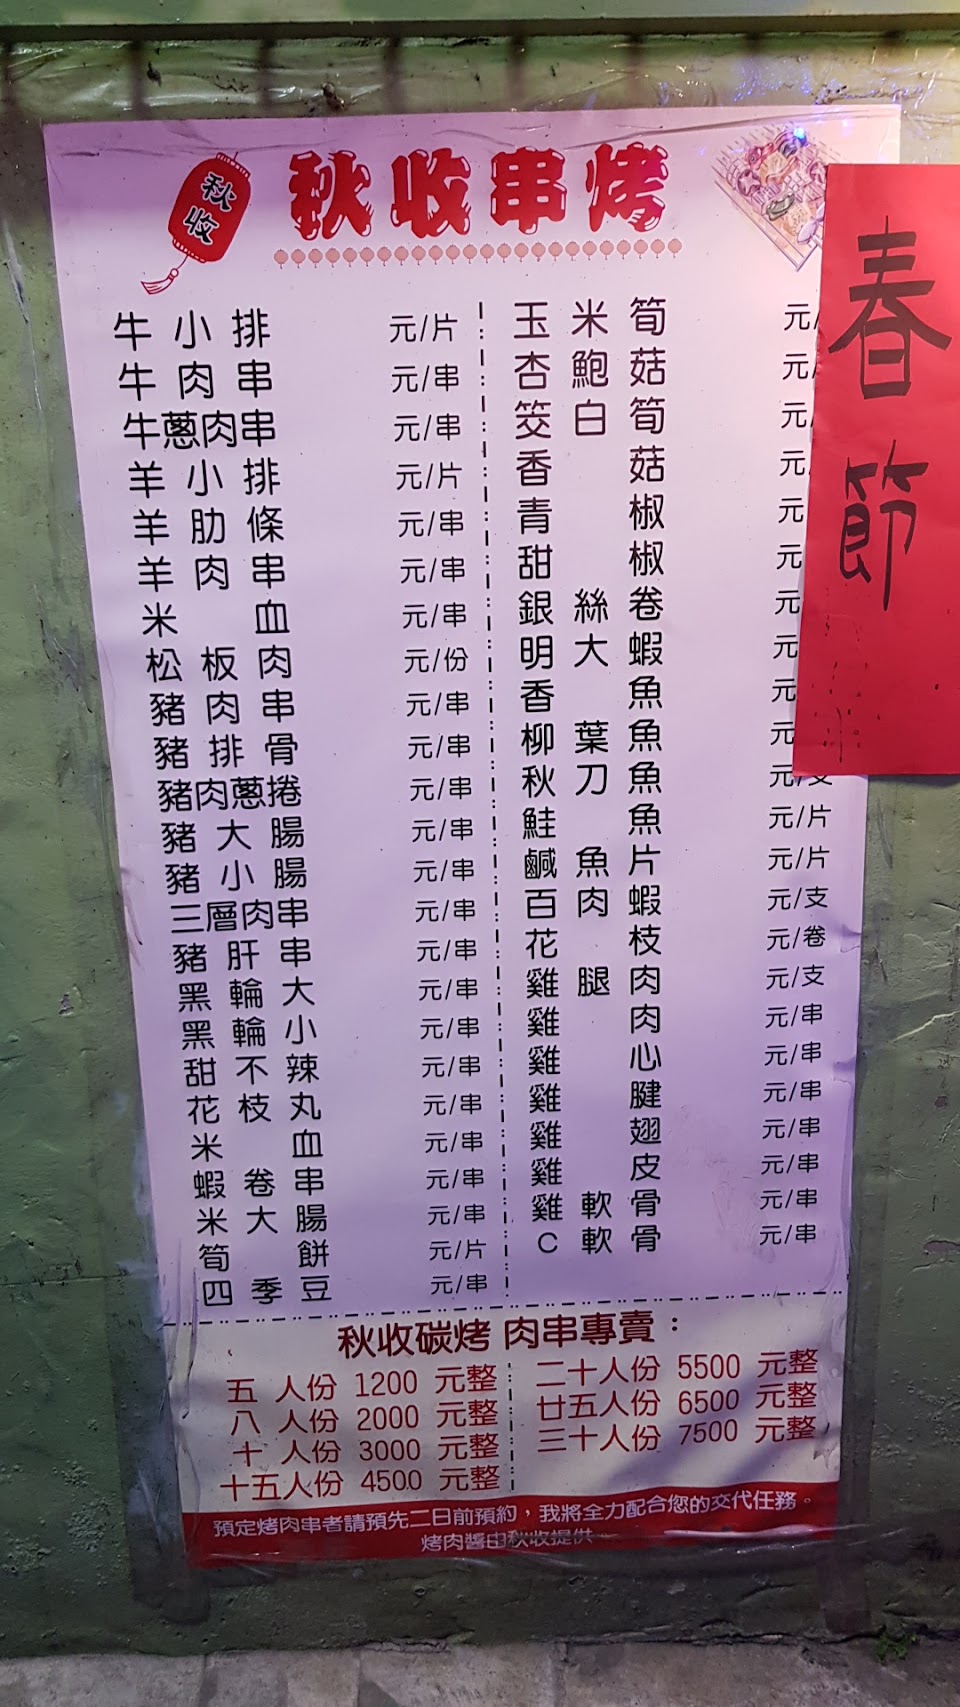 秋收
秋收串烤
牛小排 元/片
牛肉串 元/串
牛蔥肉串 元/串
羊小排 元/片
羊肋條 元/串
羊肉串 元/串
米血 元/串
松板肉 元/份
豬肉串 元/串
豬排骨 元/串
豬肉蔥捲 元/串
豬大腸 元/串
豬小腸 元/串
三層肉串 元/串
豬肝串 元/串
黑輪大 元/串
黑輪小 元/串
甜不辣 元/串
花枝丸 元/串
米血 元/串
蝦卷串 元/串
米大腸 元/串
筍餅 元/片
四季豆 元/串
玉米筍 元/
杏鮑菇 元/
筊白筍 元/
香菇 元/
青椒 元
甜椒 元
銀絲卷 元
明大蝦 元
香魚 元
柳葉魚 元
秋刀魚 元/支
鮭魚 元/片
鹹魚片 元/片
百肉蝦 元/支
花枝 元/卷
雞腿肉 元/支
雞肉 元/串
雞心 元/串
雞腱 元/串
雞翅 元/串
雞皮 元/串
雞軟骨 元/串
C軟骨 元/串
春節
秋收碳烤 肉串專賣：
五 人份 1200 元整
八 人份 2000 元整
十 人份 3000 元整
十五人份 4500 元整
二十人份 5500 元整
廿五人份 6500 元整
三十人份 7500 元整
預定烤肉串者請預先二日前預約，我將全力配合您的交代任務。
烤肉醬由秋收提供